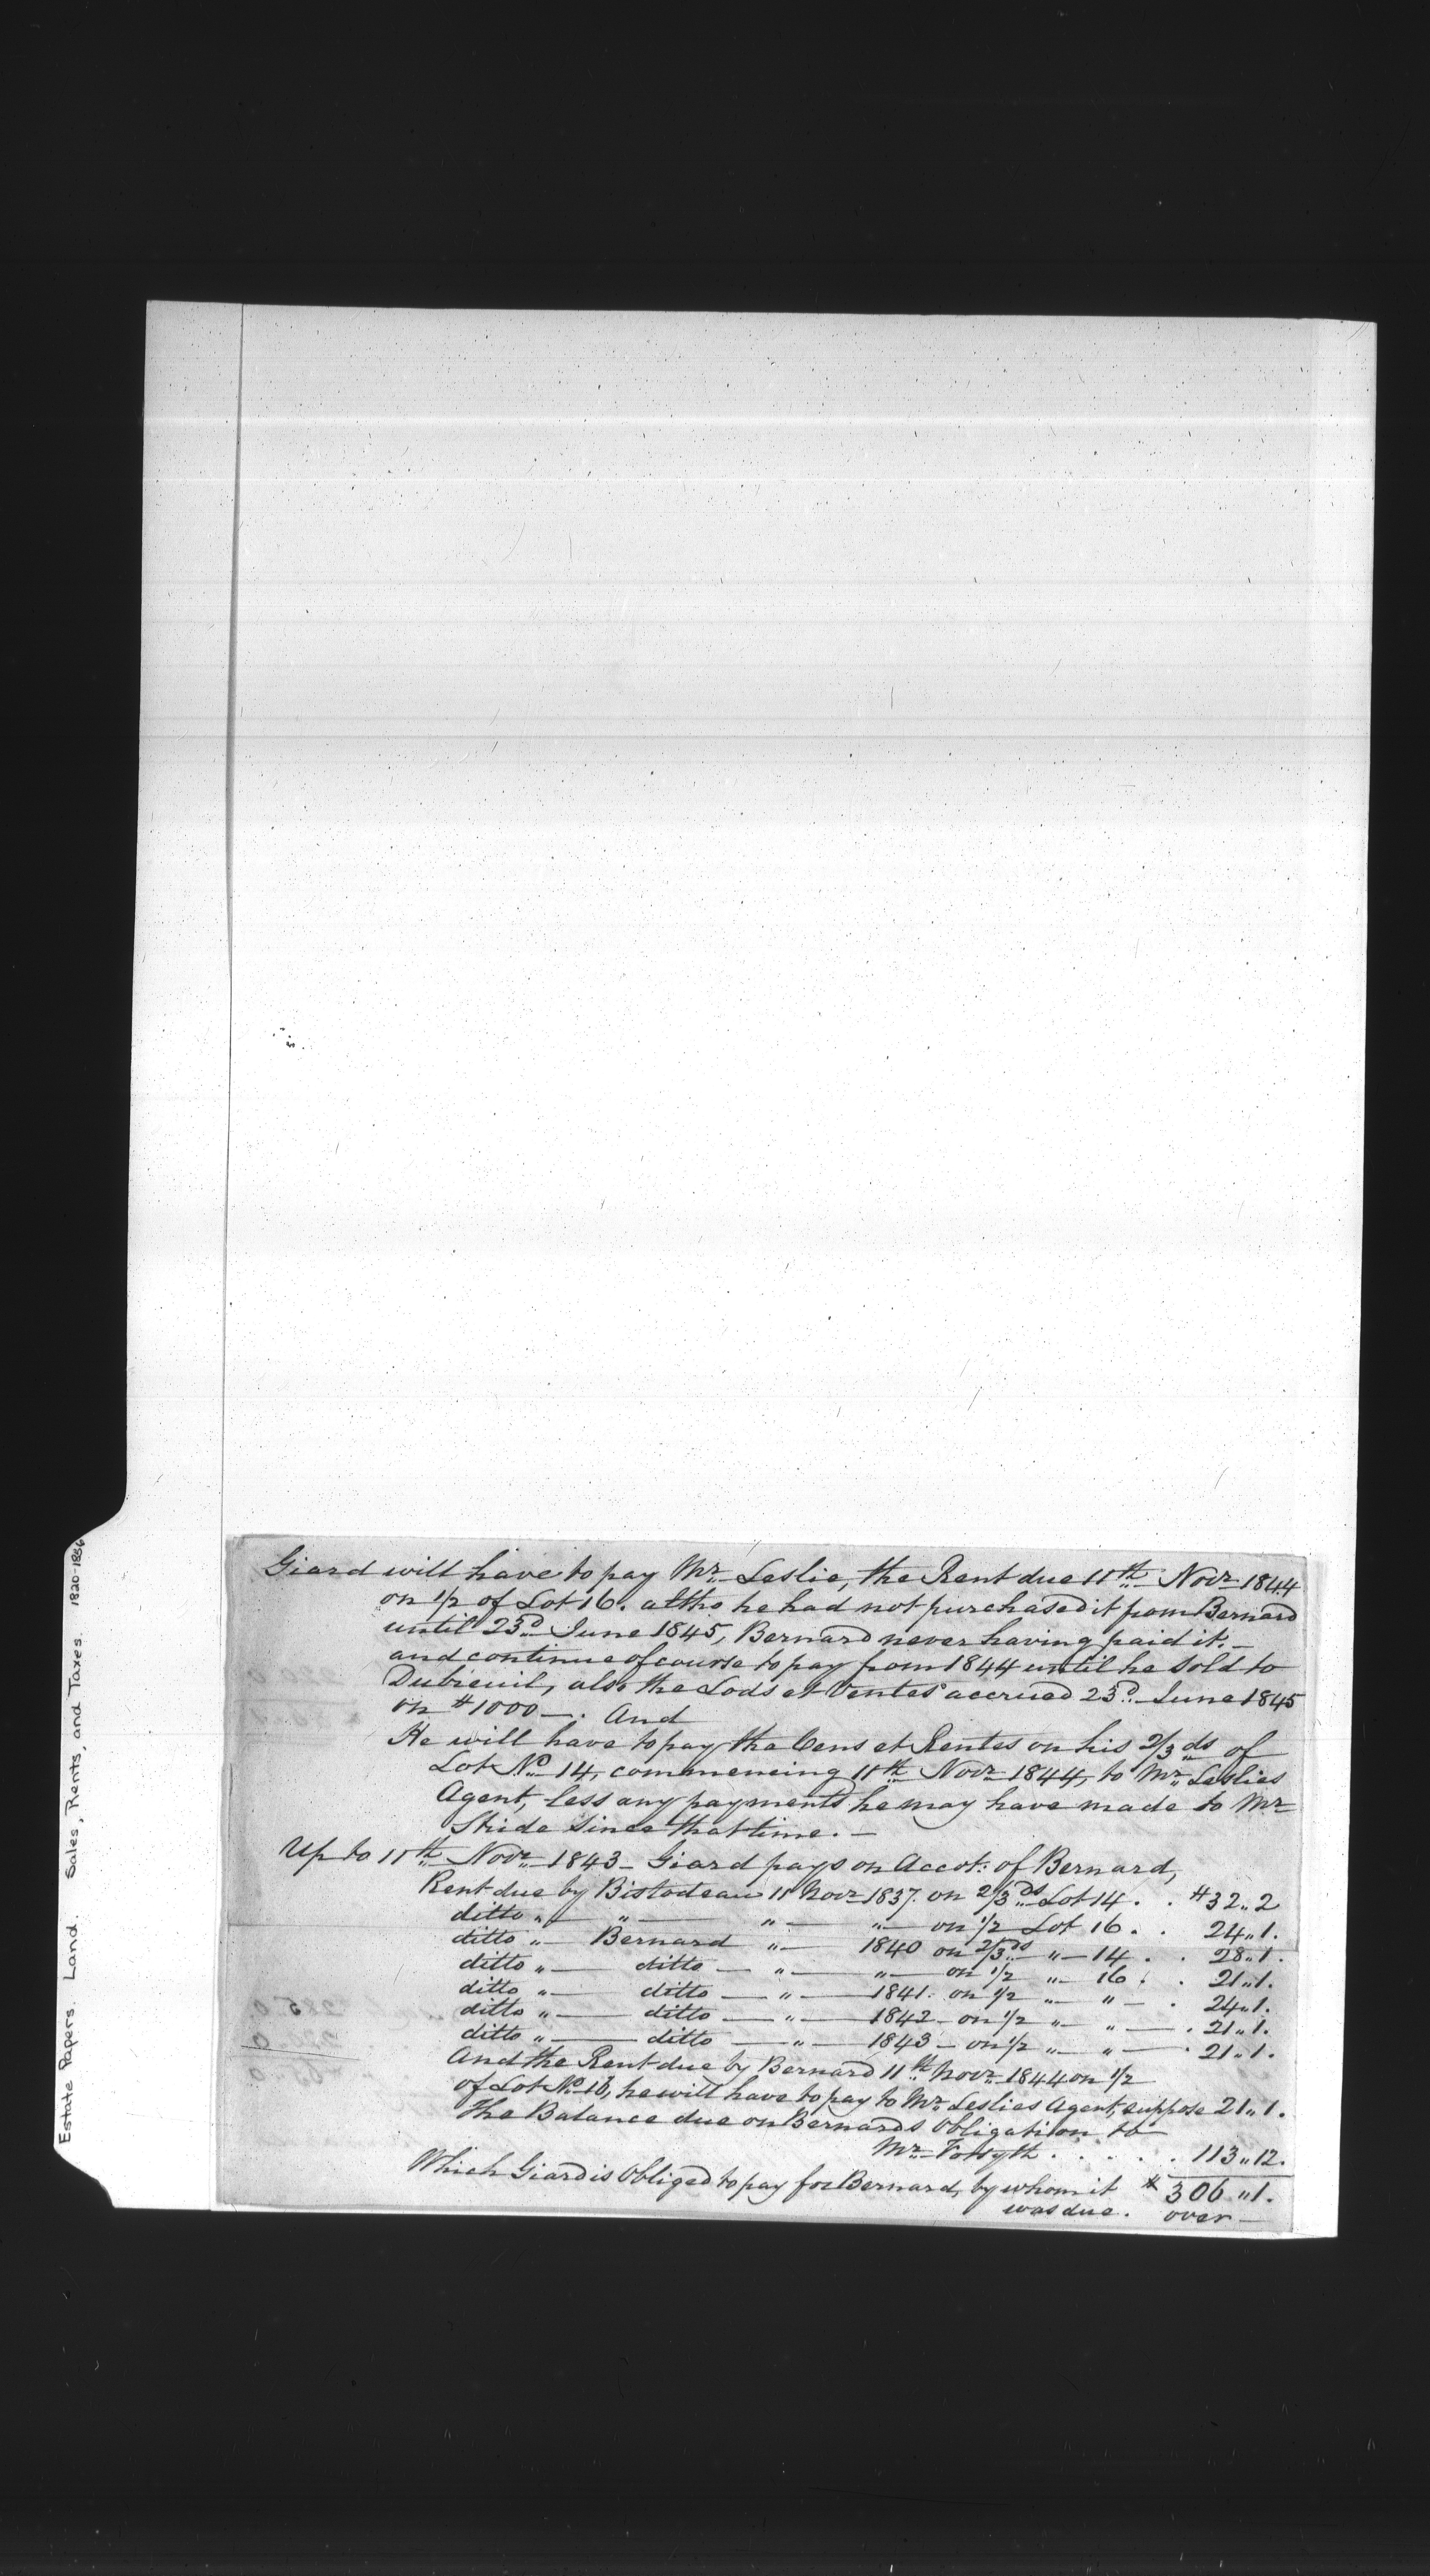 Giard will have to pay Mr. Leslie, the Rent due 11th Novr 1844
on 1/2 of Lot 16. altho he had not purchased it from Bernard
until 23d June 1845, Bernard never having paid it. —
and continue of course to pay from 1844 until he sold to
Dubreuil, also the Lods et Ventes accrued 23d June 1845
on #1000 —. And
He will have to pay the Cens et Rentes on his 2/3ds of
Lot No 14, commencing 11th Novr 1844, to Mr. Leslies
Agent, less any payments he may have made to Mr
Stride since that time. —
Up to 11th Novr 1843 — Giard pays on Accot: of Bernard,
Rent due by Bistodeau 11 Novr 1837. on 2/3ds Lot 14 . . #32.. 2
ditto „ — „ — „ — „ — on 1/2 Lot 16 . . 24.. 1.
ditto „ — Bernard „ — 1840 on 2/3ds „ — 14 . . 28.. 1.
ditto „ — ditto — „ — „ — on 1/2 „ — 16 . . 21.. 1.
ditto „ — ditto — „ — 1841. on 1/2 „ — „ — . 24.. 1.
ditto „ — ditto — „ — 1842 — on 1/2 „ — „ — . 21.. 1.
ditto „ — ditto — „ — 1843 — on 1/2 „ — „ — . 21.. 1.
And the Rent due by Bernard 11th Novr 1844 on 1/2
of Lot No 16, he will have to pay to Mr. Leslies Agent, suppose 21.. 1.
The Balance due on Bernards Obligation to
Mr. Forsyth . . . . . 113.. 12.
Which Giard is Obliged to pay for Bernard, by whom it # 306 .. 1.
was due. over —
Estate Papers. Land. Sales, Rents, and Taxes. 1820-1856